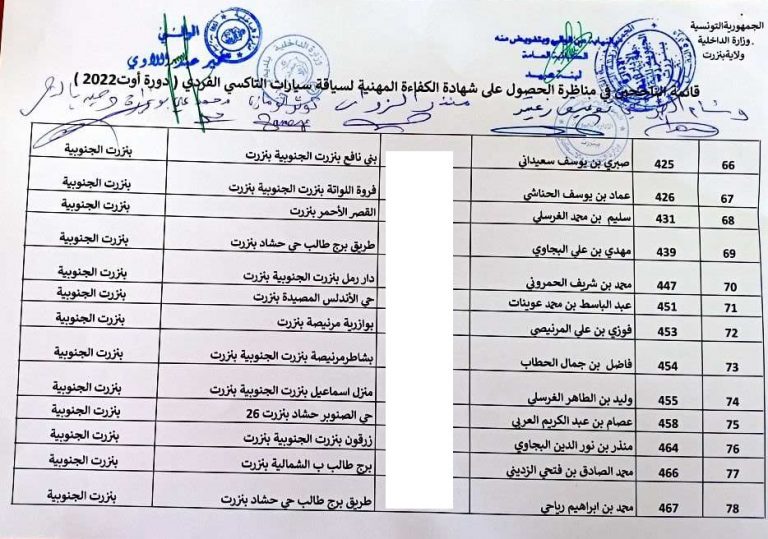 الجمهورية التونسية
وزارة الداخلية
ولاية بنزرت
قائمة الناجحين في مناظرة الحصول على شهادة الكفاءة المهنية لسياقة سيارات التاكسي الفردي ( دورة أوت2022 )
66 425 صبري بن يوسف سعيداني بني نافع بنزرت الجنوبية بنزرت بنزرت الجنوبية
67 426 عماد بن يوسف الحناشي فروة اللواتة بنزرت الجنوبية بنزرت بنزرت الجنوبية
68 431 سليم بن محمد الغرسلي القصر الأحمر بنزرت بنزرت الجنوبية
69 439 مهدي بن علي البجاوي طريق برج طالب حي حشاد بنزرت بنزرت الجنوبية
70 447 محمد بن شريف الحمروني دار رمل بنزرت الجنوبية بنزرت بنزرت الجنوبية
71 451 عبد الباسط بن محمد عوينات حي الأندلس المصيدة بنزرت بنزرت الجنوبية
72 453 فوزي بن علي المرنيصي بوازرية مرنيصة بنزرت بنزرت الجنوبية
73 454 فاضل بن جمال الحطاب بشاطرمرنيصة بنزرت الجنوبية بنزرت بنزرت الجنوبية
74 455 وليد بن الطاهر الغرسلي منزل اسماعيل بنزرت الجنوبية بنزرت بنزرت الجنوبية
75 458 عصام بن عبد الكريم العربي حي الصنوبر حشاد بنزرت 26 بنزرت الجنوبية
76 464 منذر بن نور الدين البجاوي زرقون بنزرت الجنوبية بنزرت بنزرت الجنوبية
77 466 محمد الصادق بن فتحي الزديني برج طالب ب الشمالية بنزرت بنزرت الجنوبية
78 467 محمد بن ابراهيم رياحي طريق برج طالب حي حشاد بنزرت بنزرت الجنوبية